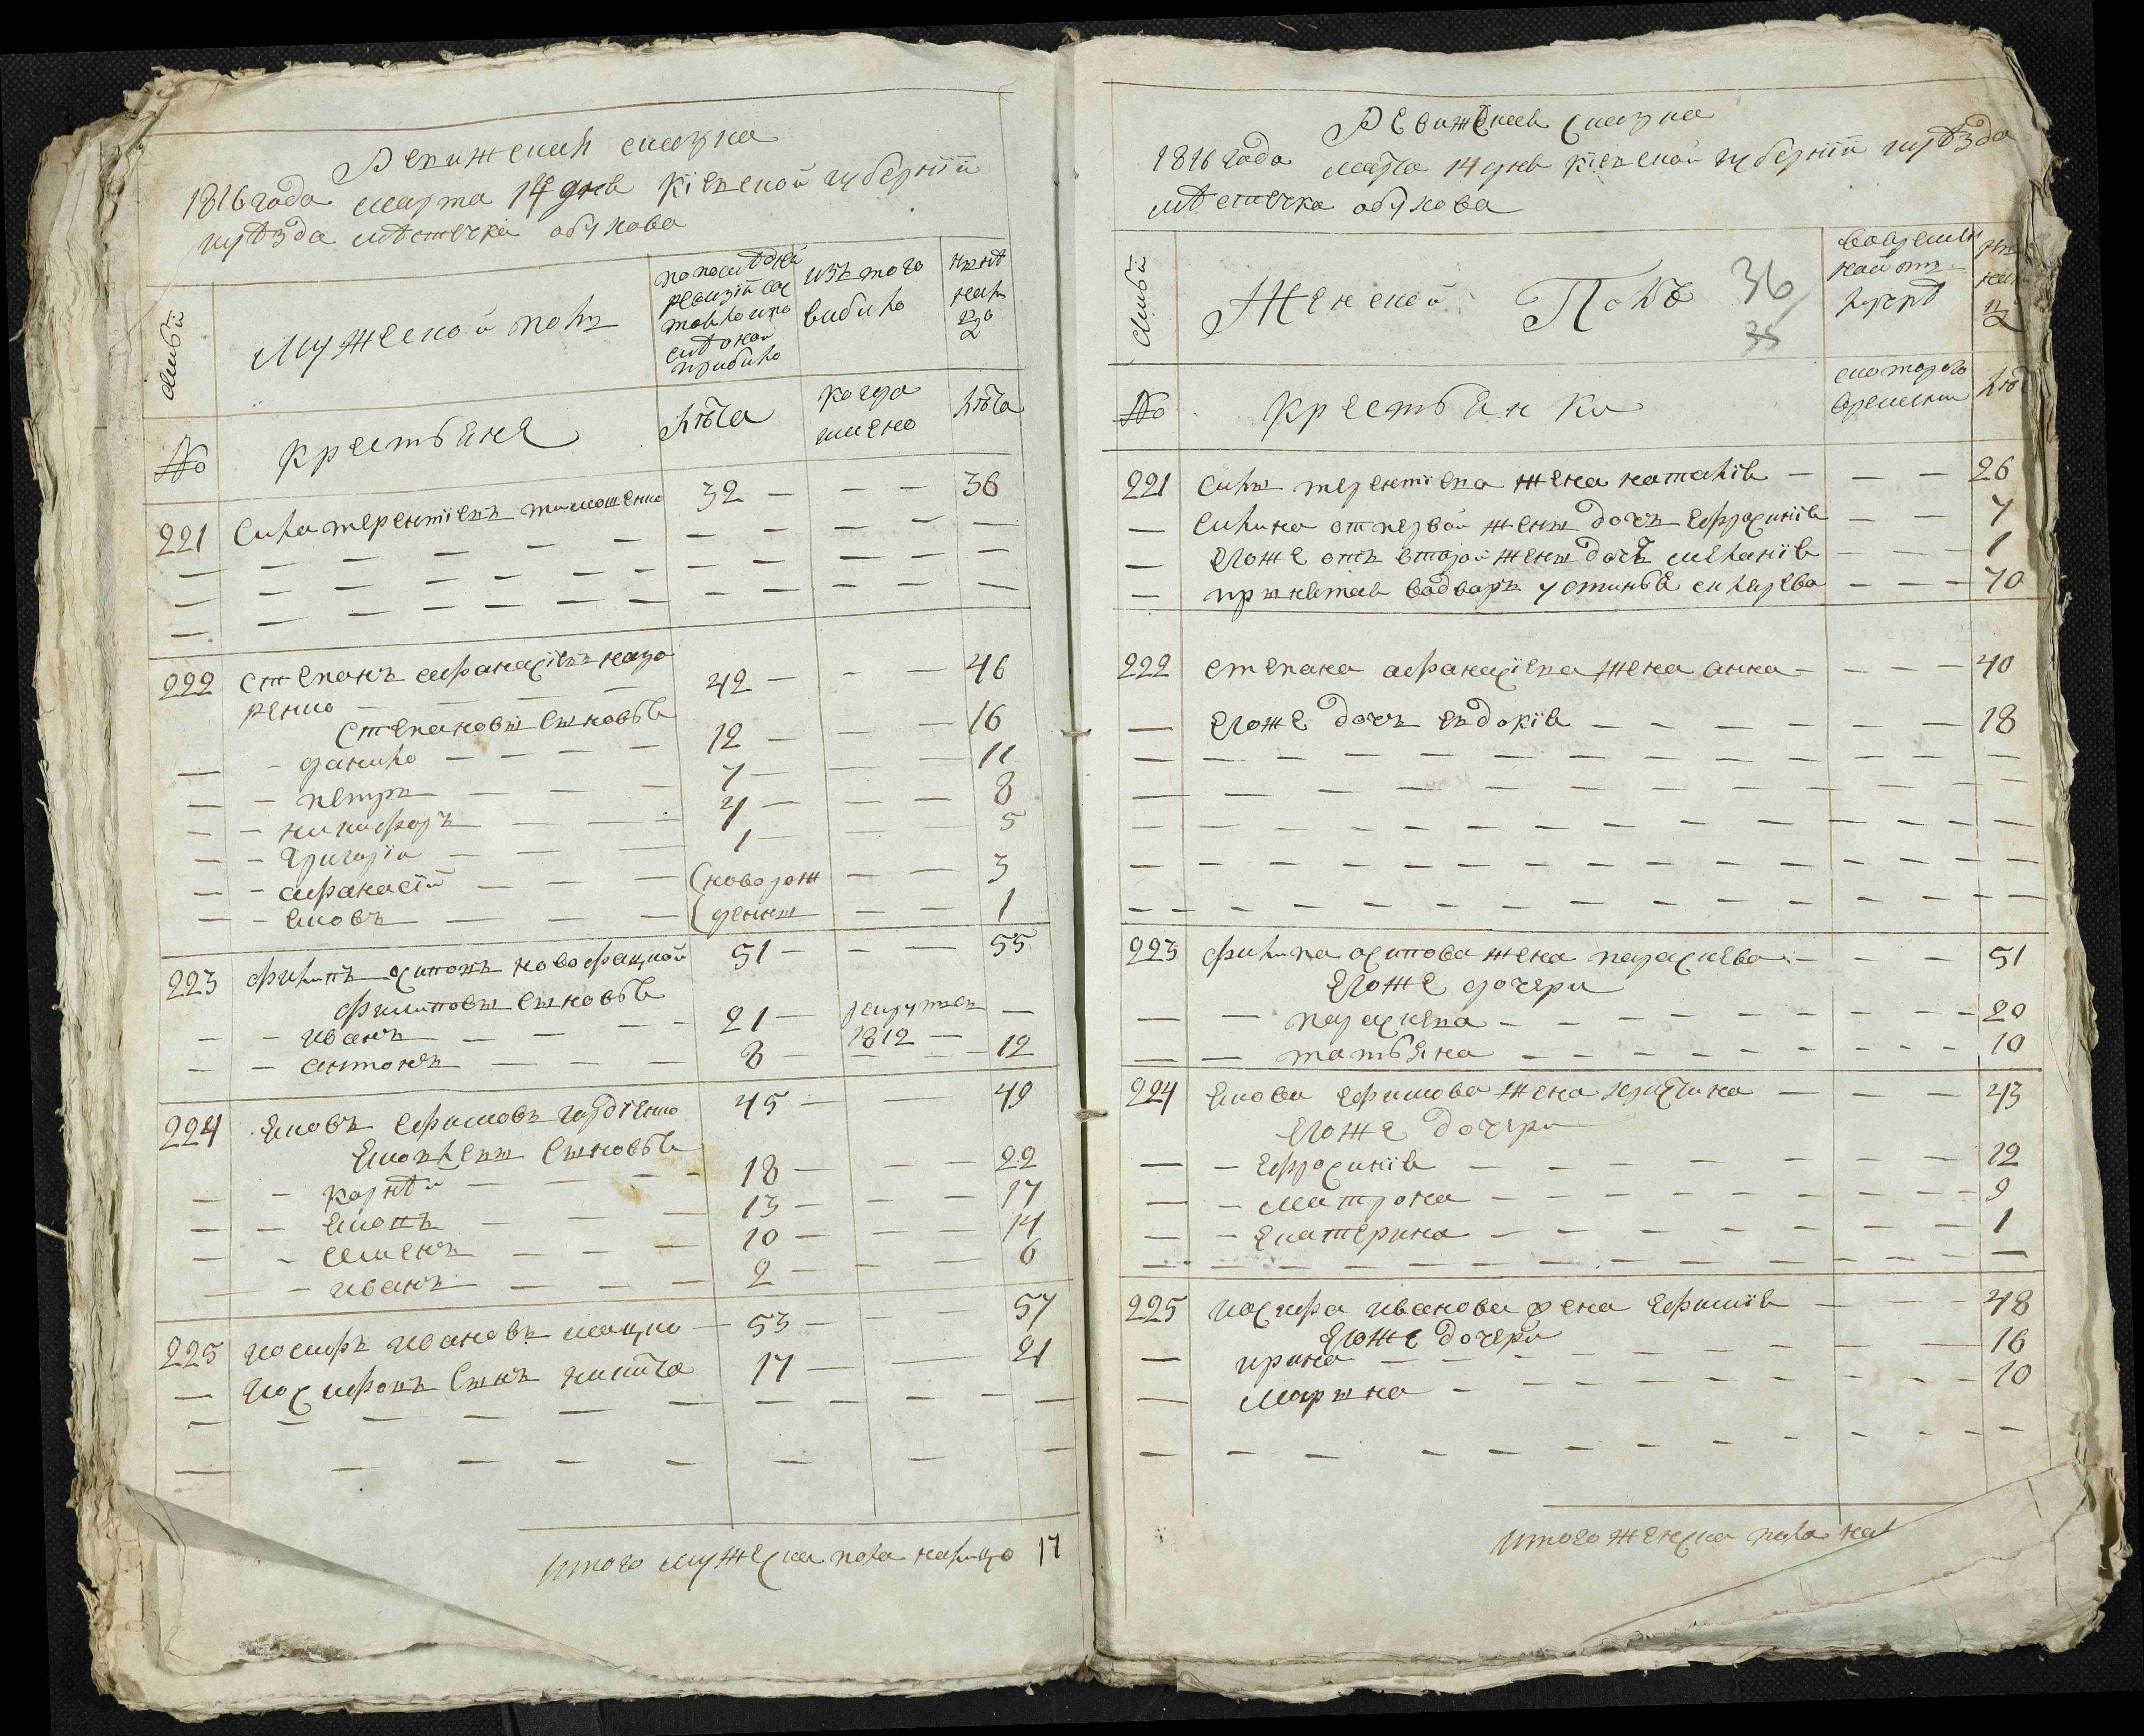 Ревижская сказка
1816 года марта 14 дня Кіевской губерніи
уѣзда мѣстечка обухова
Мужеской полъ
по последней
ревизіи со
тояло и по
слѣ оной
прибыло
изъ того
выбыло
нынѣ
на ли
цо
№
крестьяне
лѣта
когда
имено
лѣта
221 Сила терентіевъ тимошенко 32 — — — 36
222 Степанъ афанасіевъ назо
ренко — 42 — — — 46
Степановы сыновья
— - данило — 12 — — — 16
— - петръ — 7 — — — 11
— - никифоръ — 4 — — — 8
— - Григорій — 1 — — — 5
— - афанасій — (новорож — — 3
— - яковъ — (денны — — 1
223 филипъ осиповъ новофацкой 51 — — — 55
филиповы сыновья
— - иванъ — 21 — рекрутъ —
1812
— - антонъ — 8 — — 12
224 яковъ ефимовъ 45 — — 49
яковлевы сыновья
— - корнѣй — 18 — — — 22
— - яковъ — 13 — — — 17
— - семенъ — 10 — — — 14
— - иванъ — 2 — — — 6
225 иосифъ ивановъ мацко — 53 — — — 57
— иосифовъ сынъ никита 17 — — 21
итого мужеска пола налицо 17
Ревижская сказка
1816 года марта 14 дня кіевской губерніи уѣзда
мѣстечка обухова
Женской Полъ
36
35
во времен
ной от
лучкѣ
№
крестьянки
с которого
времени
221 силы терентіева жена наталія — — — 26
— силина от первой жены дочь ефросинія — — 7
— его же отъ второй жены дочь меланія — — — 1
— принятая во дворъ устинья — — — 70
222 степана афанасіева жена анна — — — — 40
— его же дочь евдокія — — — — 18
223 филипа осипова жена параскева — — — 51
его же дочери
— — параскева — — — 20
— — татьяна — — — 10
224 якова ефимова жена христина — — — 43
его же дочери
— - ефросинія — — — 12
— - матрона — — — 9
— - екатерина — — — 1
225 иосифа иванова жена ефимія — — — 48
его же дочери
— ирина — — — 16
— марына — — — 10
итого женска пола нал